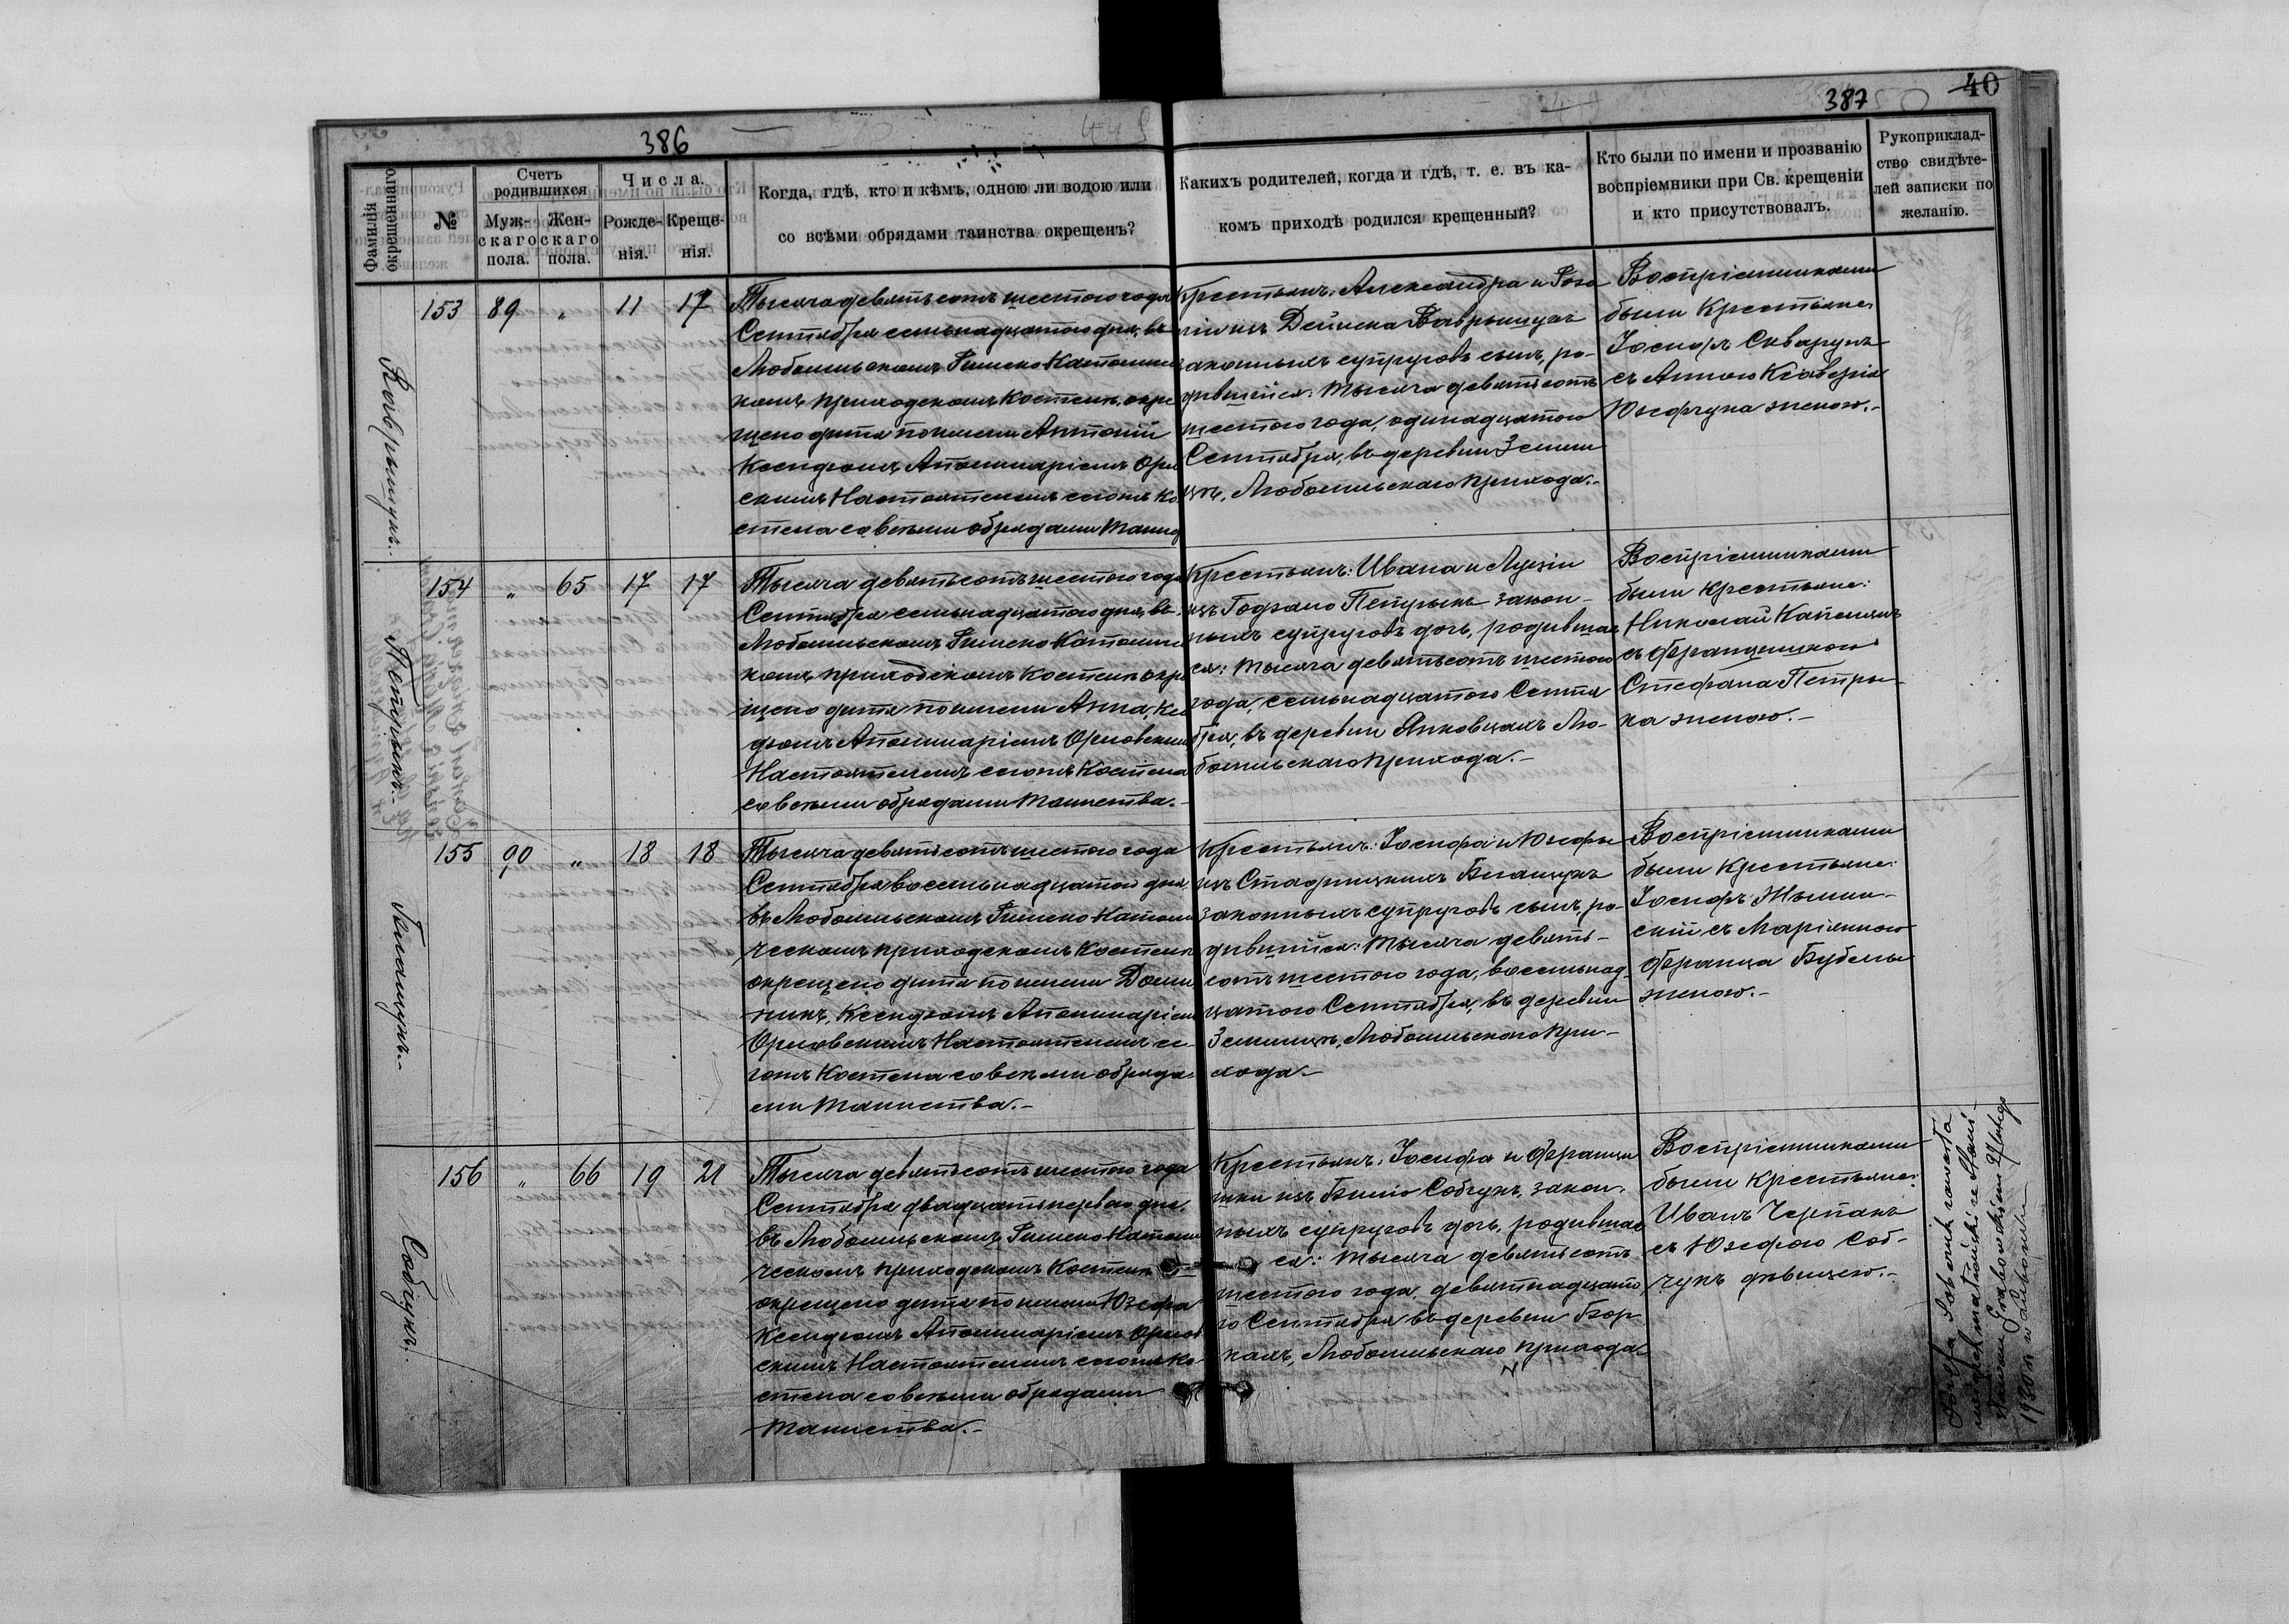 386
387
40
Фамилія окрещеннаго
№
Счетъ родившихся
Муж-
скаго
пола.
Жен-
скаго
пола.
Числа.
Рожде-
нія.
Креще-
нія.
Когда, гдѣ, кто и кѣмъ, одною ли водою или
со всѣми обрядами таинства окрещенъ?
Какихъ родителей, когда и гдѣ, т. е. въ ка-
комъ приходѣ родился крещенный?
Кто были по имени и прозванію
воспріемники при Св. крещеніи
и кто присутствовалъ.
Рукоприклад-
ство свидѣте-
лей записки по
желанію.
153 89 „ 11 17
Тысяча девятьсотъ шестого года
Сентября семьнадцатого дня, въ
Любомльскомъ Римско Католиче
комъ приходскомъ костелѣ, окре
щено дитя по имени Антоній
Ксендзомъ Аполинаріемъ Орло
скимъ Настоятелемъ сегожъ Ко
стела со всѣми обрядами Таинс
Крестьянъ: Александра и
законныхъ супруговъ сынъ, ро-
дившійся: тысяча девятьсотъ
шестого года, одинадцатого
Сентября, въ деревни Земли
цѣ, Любомльскаго прихода.-
Воспріемниками
были Крестьяне
Іосифъ Скварукъ
съ Анною Ксаверія
Юзефчука женою.-
154 „ 65 17 17
Петрыкъ.-
Тысяча девятьсотъ шестого года
Сентября семьнадцатого дня, въ
Любомльскомъ Римско Католиче
комъ приходскомъ Костелѣ окре
щено дитя по имени Анна, Ксе
дзомъ Аполинаріемъ Орловским
Настоятелемъ сегожъ Костела
со всѣми обрядами Таинства.-
Крестьянъ: Ивана и Луціи
Петрыкъ закон-
ныхъ супруговъ дочь, родившая
ся: тысяча девятьсотъ шестого
года, семьнадцатого Сентя
бря, въ деревни Янковцахъ Лю-
бомльскаго прихода.-
Воспріемниками
были крестьяне:
Николай
съ Францишкою
Стефана Петры-
ка женою.-
155 90 „ 18 18
Тысяча девятьсотъ шестого года
Сентября восемьнадцатого дня
въ Любомльскомъ Римско Католи
ческомъ приходскомъ Костелѣ
окрещено дитя по имени Доми
никъ, Ксендзомъ Аполинаріем
Орловскимъ Настоятелемъ се-
гожъ Костела со всѣми обряда-
ми Таинства.-
Крестьянъ: Іосифа и Юзефы
законныхъ супруговъ сынъ, ро-
дившійся: тысяча девять-
сотъ шестого года, восемьнад-
цатого Сентября, въ деревни
Землицѣ, Любомльскаго при-
хода.-
Воспріемниками
были Крестьяне:
Іосифъ
съ Маріянною
Франца Бубелы
женою.-
156 „ 66 19 21
Собчукъ.
Тысяча девятьсотъ шестого года
Сентября двадцатьперваго дня
въ Любомльскомъ Римско Католи
ческомъ приходскомъ Костелѣ
окрещено дитя по имени Юзефа
Ксендзомъ Аполинаріемъ Орлов
скимъ Настоятелемъ сегожъ Ко-
стела со всѣми обрядами
Таинства.-
Крестьянъ: Іосифа и Франци
шки изъ Собчукъ, закон-
ныхъ супруговъ дочь, родившая
ся: тысяча девятьсотъ
шестого года, девятнадцато
го Сентября въ деревни Бор
кахъ, Любомльскаго прихода
Воспріемниками
были Крестьяне:
Иванъ Черпакъ
съ Юзефою Соб-
чукъ дѣвицею.-
Józefa Sobczuk zawarła
związek małżeński ze Stani-
sławem Grabowskim 27 lutego
1930 r. w Lubomlu